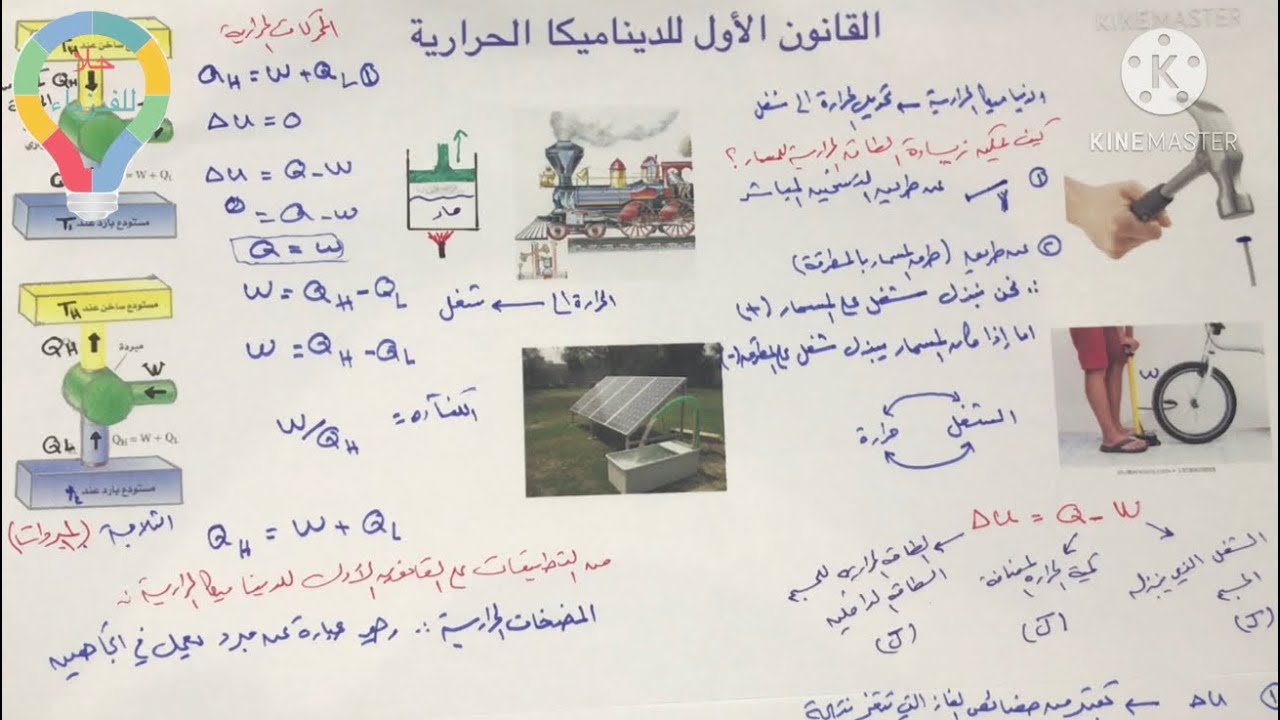 القانون الأول للديناميكا الحرارية
KINEMASTER
K
KINEMASTER
الديناميكا الحرارية ← تحويل الحرارة الى شغل
كيف يمكن زيادة الطاقة الحرارية للمسمار؟
① عن طريق التسخين المباشر
② عن طريق (طرق المسمار بالمطرقة)
∴ نحن نبذل شغل على المسمار (+)
اما إذا قام المسمار يبذل شغل على المطرقة (-)
الشغل
حرارة
W
ΔU = Q - W
الشغل الذي يبذله الجسم (J)
كمية الحرارة المضافة (J)
الطاقة الحرارية للجسم
الطاقة الداخلية (J)
① ΔU ←
المحركات الحرارية
Q_H = W + Q_L ①
ΔU = 0
ΔU = Q - W
0 = Q - W
Q = W
W = Q_H - Q_L
الحرارة الى ← شغل
W = Q_H - Q_L
الكفاءة = W/Q_H
غاز
حلا
للفيزياء
T_H
Q_H
= W + Q_L
مستودع بارد عند
T_L
مستودع ساخن عند T_H
Q_H
مبردة
W
Q_L
Q_H = W + Q_L
مستودع بارد عند T_L
الثلاجة (المبردات)
Q_H = W + Q_L
من التطبيقات على القانون الأول للديناميكا الحرارية :.
المضخات الحرارية :. وهي عبارة عن مبرد يعمل في اتجاهين